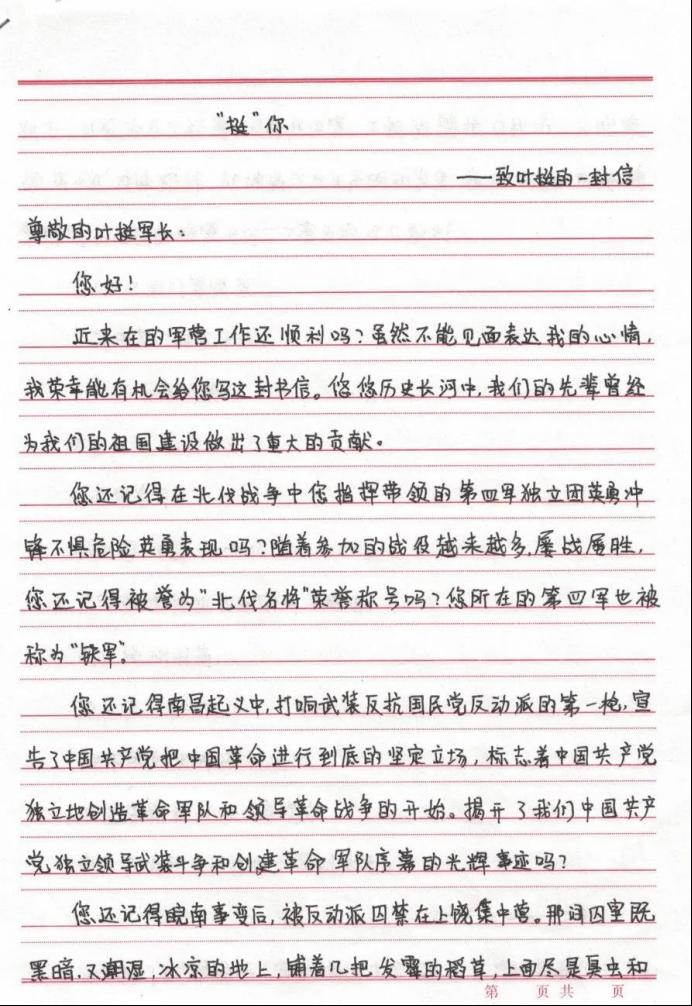 “挺”你
——致叶挺的一封信
尊敬的叶挺军长:
您好!
近来在的军营工作还顺利吗?虽然不能见面表达我的心情,
我荣幸能有机会给您写这封书信。悠悠历史长河中,我们的先辈曾经
为我们的祖国建设做出了重大的贡献。
您还记得在北伐战争中您指挥带领的第四军独立团英勇冲
锋不惧危险英勇表现吗?随着参加的战役越来越多,屡战屡胜,
您还记得被誉为“北伐名将”荣誉称号吗?您所在的第四军也被
称为“铁军”。
您还记得南昌起义中,打响武装反抗国民党反动派的第一枪,宣
告了中国共产党把中国革命进行到底的坚定立场,标志着中国共产党
独立地创造革命军队和领导革命战争的开始。揭开了我们中国共产
党独立领导武装斗争和创建革命军队序幕的光辉事迹吗?
您还记得皖南事变后,被反动派囚禁在上饶集中营。那间囚室既
黑暗.又潮湿,冰凉的地上,铺着几把发霉的稻草,上面尽是臭虫和
第 页 共 页